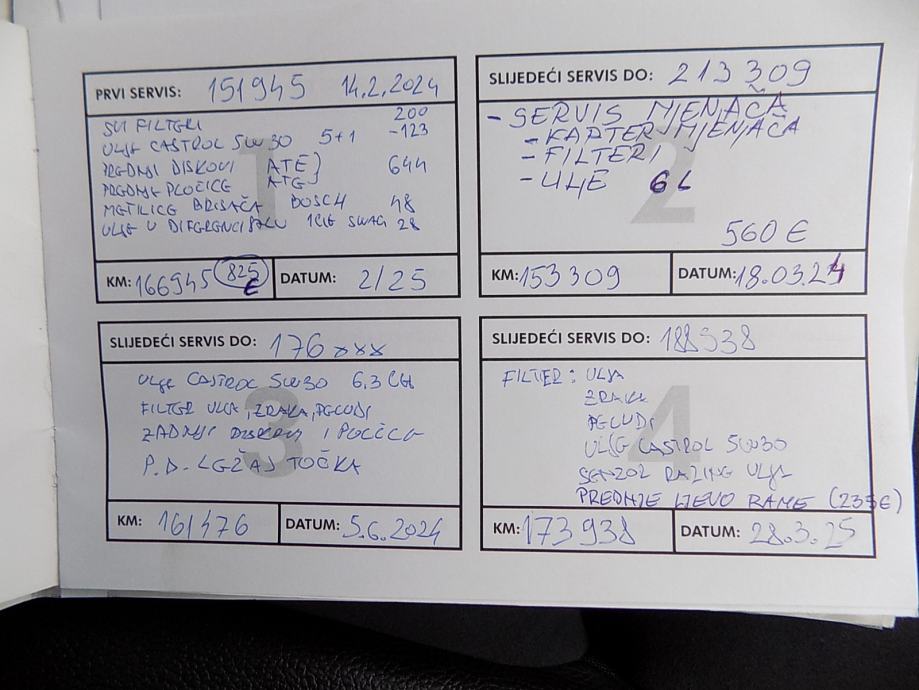 PRVI SERVIS: 151945 14.2.2024
SVI FILTERI 200
ULJE CASTROL 5W30 5+1 -123
PREDNJI DISKOVI ATE) 644
PREDNJE PLOČICE ATE
METLICE BRISAČA BOSCH 48
ULJE U DIFERENCIJALU SWAG 28
KM: 166945 825 € DATUM: 2/25
1
SLIJEDEĆI SERVIS DO: 213 309
- SERVIS MJENJAČA
- KARTER MJENJAČA
- FILTERI
- ULJE 6L
560 €
KM: 153309 DATUM: 18.03.24
2
SLIJEDEĆI SERVIS DO: 176 xxx
ULJE CASTROL 5W30 6,3
FILTER ULJA, ZRAKA, PELUDI
ZADNJI DISKOVI I PLOČICE
P.D. LEŽAJ TOČKA
KM: 161476 DATUM: 5.6.2024
3
SLIJEDEĆI SERVIS DO: 188938
FILTER: ULJA
ZRAKA
PELUDI
ULJE CASTROL 5W30
SENZOR RAZINE ULJA
PREDNJE LIJEVO RAME (235€)
KM: 173 938 DATUM: 28.3.25
4